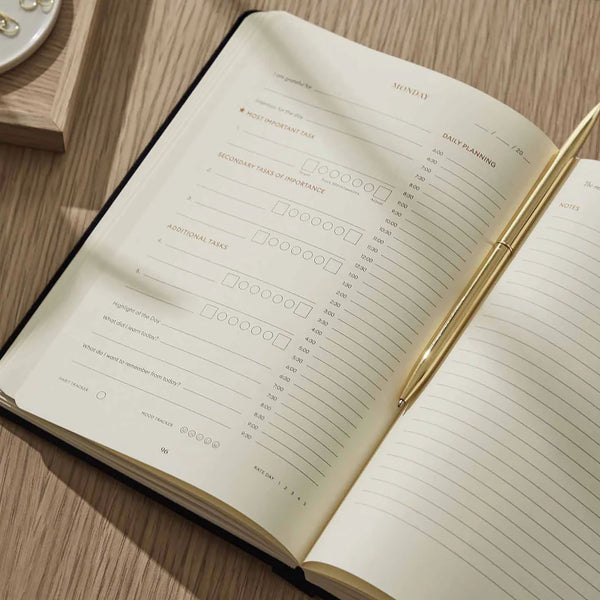 MONDAY
__ / __ / 20 __
I am grateful for
Intention for the day
★ MOST IMPORTANT TASK
1.
SECONDARY TASKS OF IMPORTANCE
2.
3.
ADDITIONAL TASKS
4.
5.
Highlight of the Day
What did I learn today?
What do I want to remember from today?
HABIT TRACKER
MOOD TRACKER
96
DAILY PLANNING
6:00
6:30
7:00
7:30
8:00
8:30
9:00
9:30
10:00
10:30
11:00
11:30
12:00
12:30
1:00
1:30
2:00
2:30
3:00
3:30
4:00
4:30
5:00
5:30
6:00
6:30
7:00
7:30
8:00
8:30
9:00
9:30
RATE DAY 1 2 3 4 5
NOTES